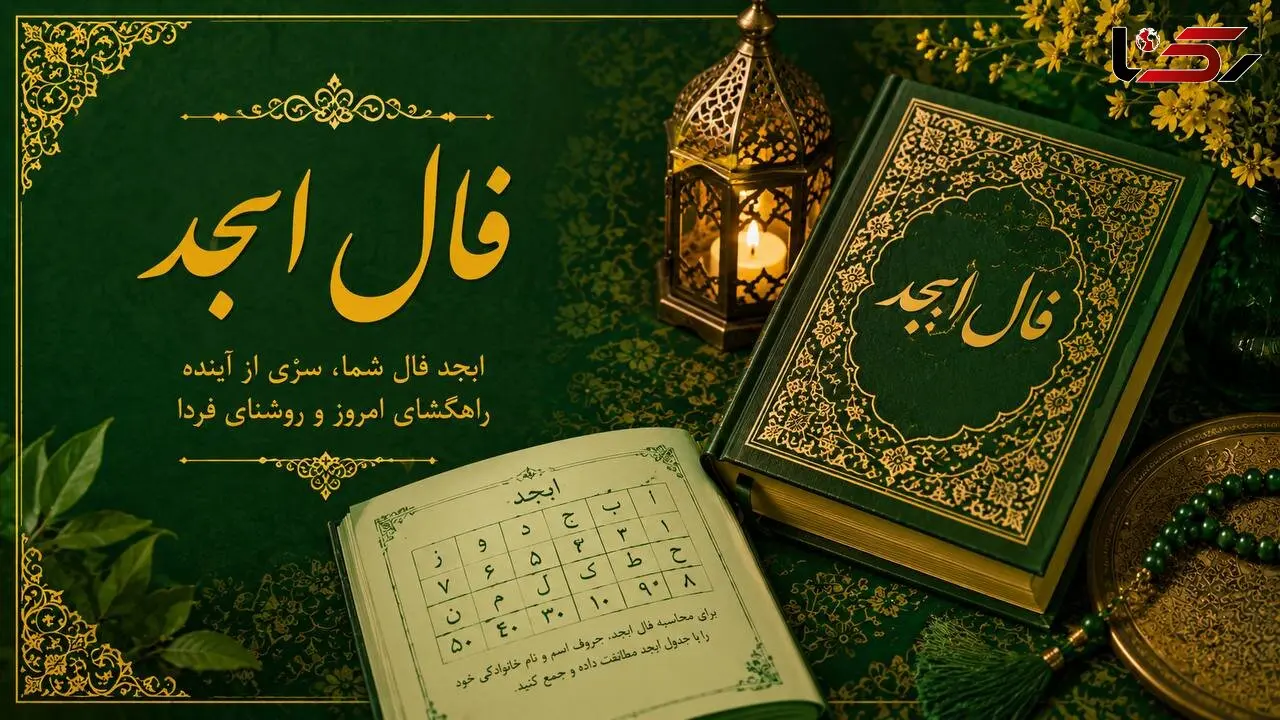 رکنا
فال ابجد
ابجد فال شما، سرّی از آینده
راهگشای امروز و روشنای فردا
فال ابیجد
ابجد
ا ب ج د و ز
۱ ۳ ۳ ۵ ۶ ۷
ح ط ک ل م ن
۸ ۹ ۱۰ ۳۰ ۴۰ ۵۰
برای محاسبه فال ابجد، حروف اسم و نام خانوادگی خود
را با جدول ابجد مطابقت داده و جمع کنید.